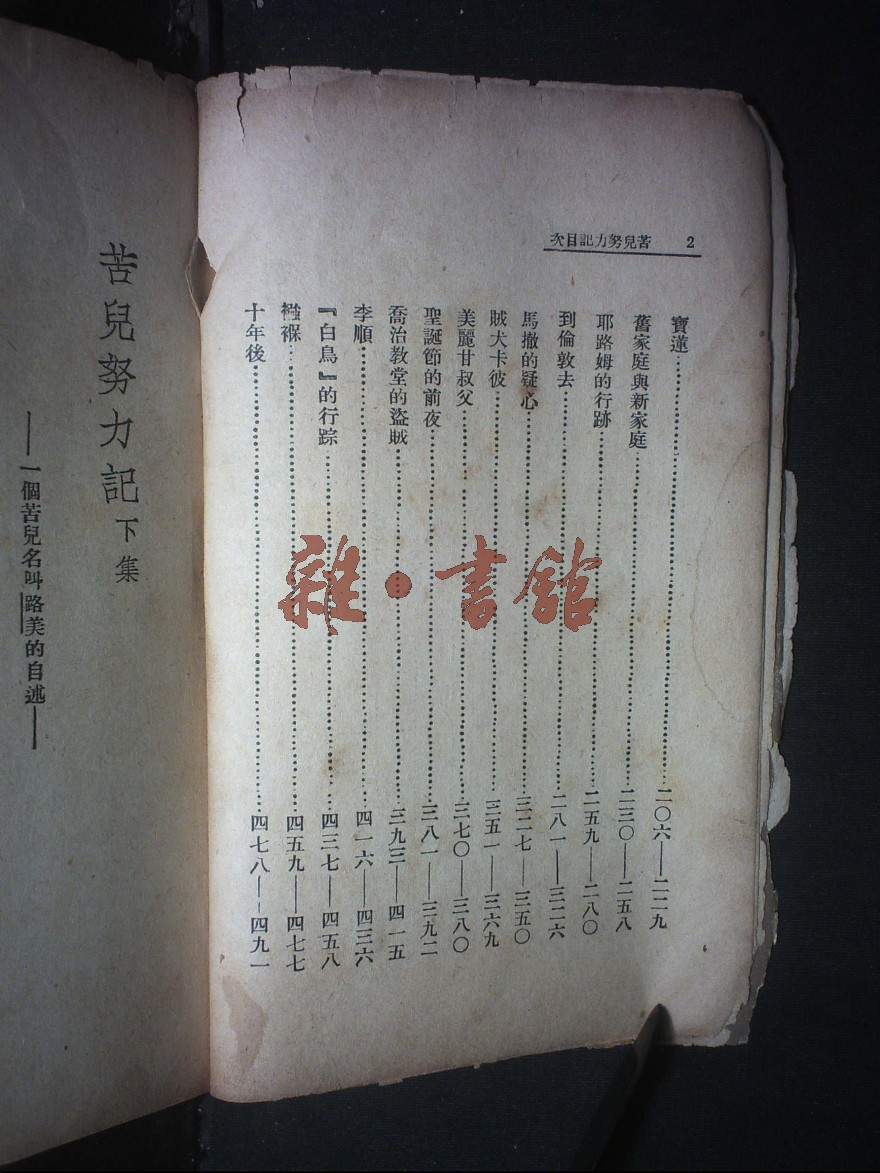 2 苦兒努力記目次
寶蓮……二〇六——二二九
舊家庭與新家庭……二三〇——二五八
耶路姆的行跡……二五九——二八〇
到倫敦去……二八一——三二六
馬撤的疑心……三二七——三五〇
賊犬卡彼……三五一——三六九
美麗甘叔父……三七〇——三八〇
聖誕節的前夜……三八一——三九二
喬治教堂的盜賊……三九三——四一五
李順……四一六——四三六
『白鳥』的行踪……四三七——四五八
襁褓……四五九——四七七
十年後……四七八——四九一
苦兒努力記 下集
——一個苦兒名叫路美的自述——
雜·書館